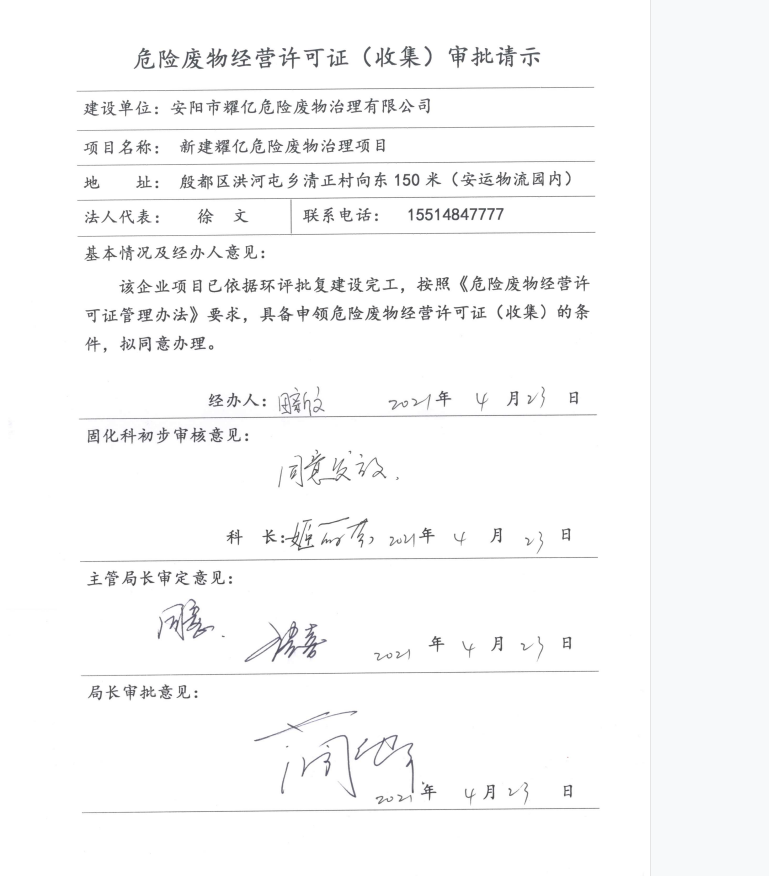 危险废物经营许可证（收集）审批请示
建设单位：安阳市耀亿危险废物治理有限公司
项目名称：新建耀亿危险废物治理项目
地 址：殷都区洪河屯乡清正村向东 150 米（安运物流园内）
法人代表： 徐 文 联系电话： 15514847777
基本情况及经办人意见：
该企业项目已依据环评批复建设完工，按照《危险废物经营许
可证管理办法》要求，具备申领危险废物经营许可证（收集）的条
件，拟同意办理。
经办人： 2021年 4 月 23 日
固化科初步审核意见：
同意发放.
科 长： 2021年 4 月 23 日
主管局长审定意见：
同意.
2021 年 4 月 23 日
局长审批意见：
2021 年 4 月 23 日